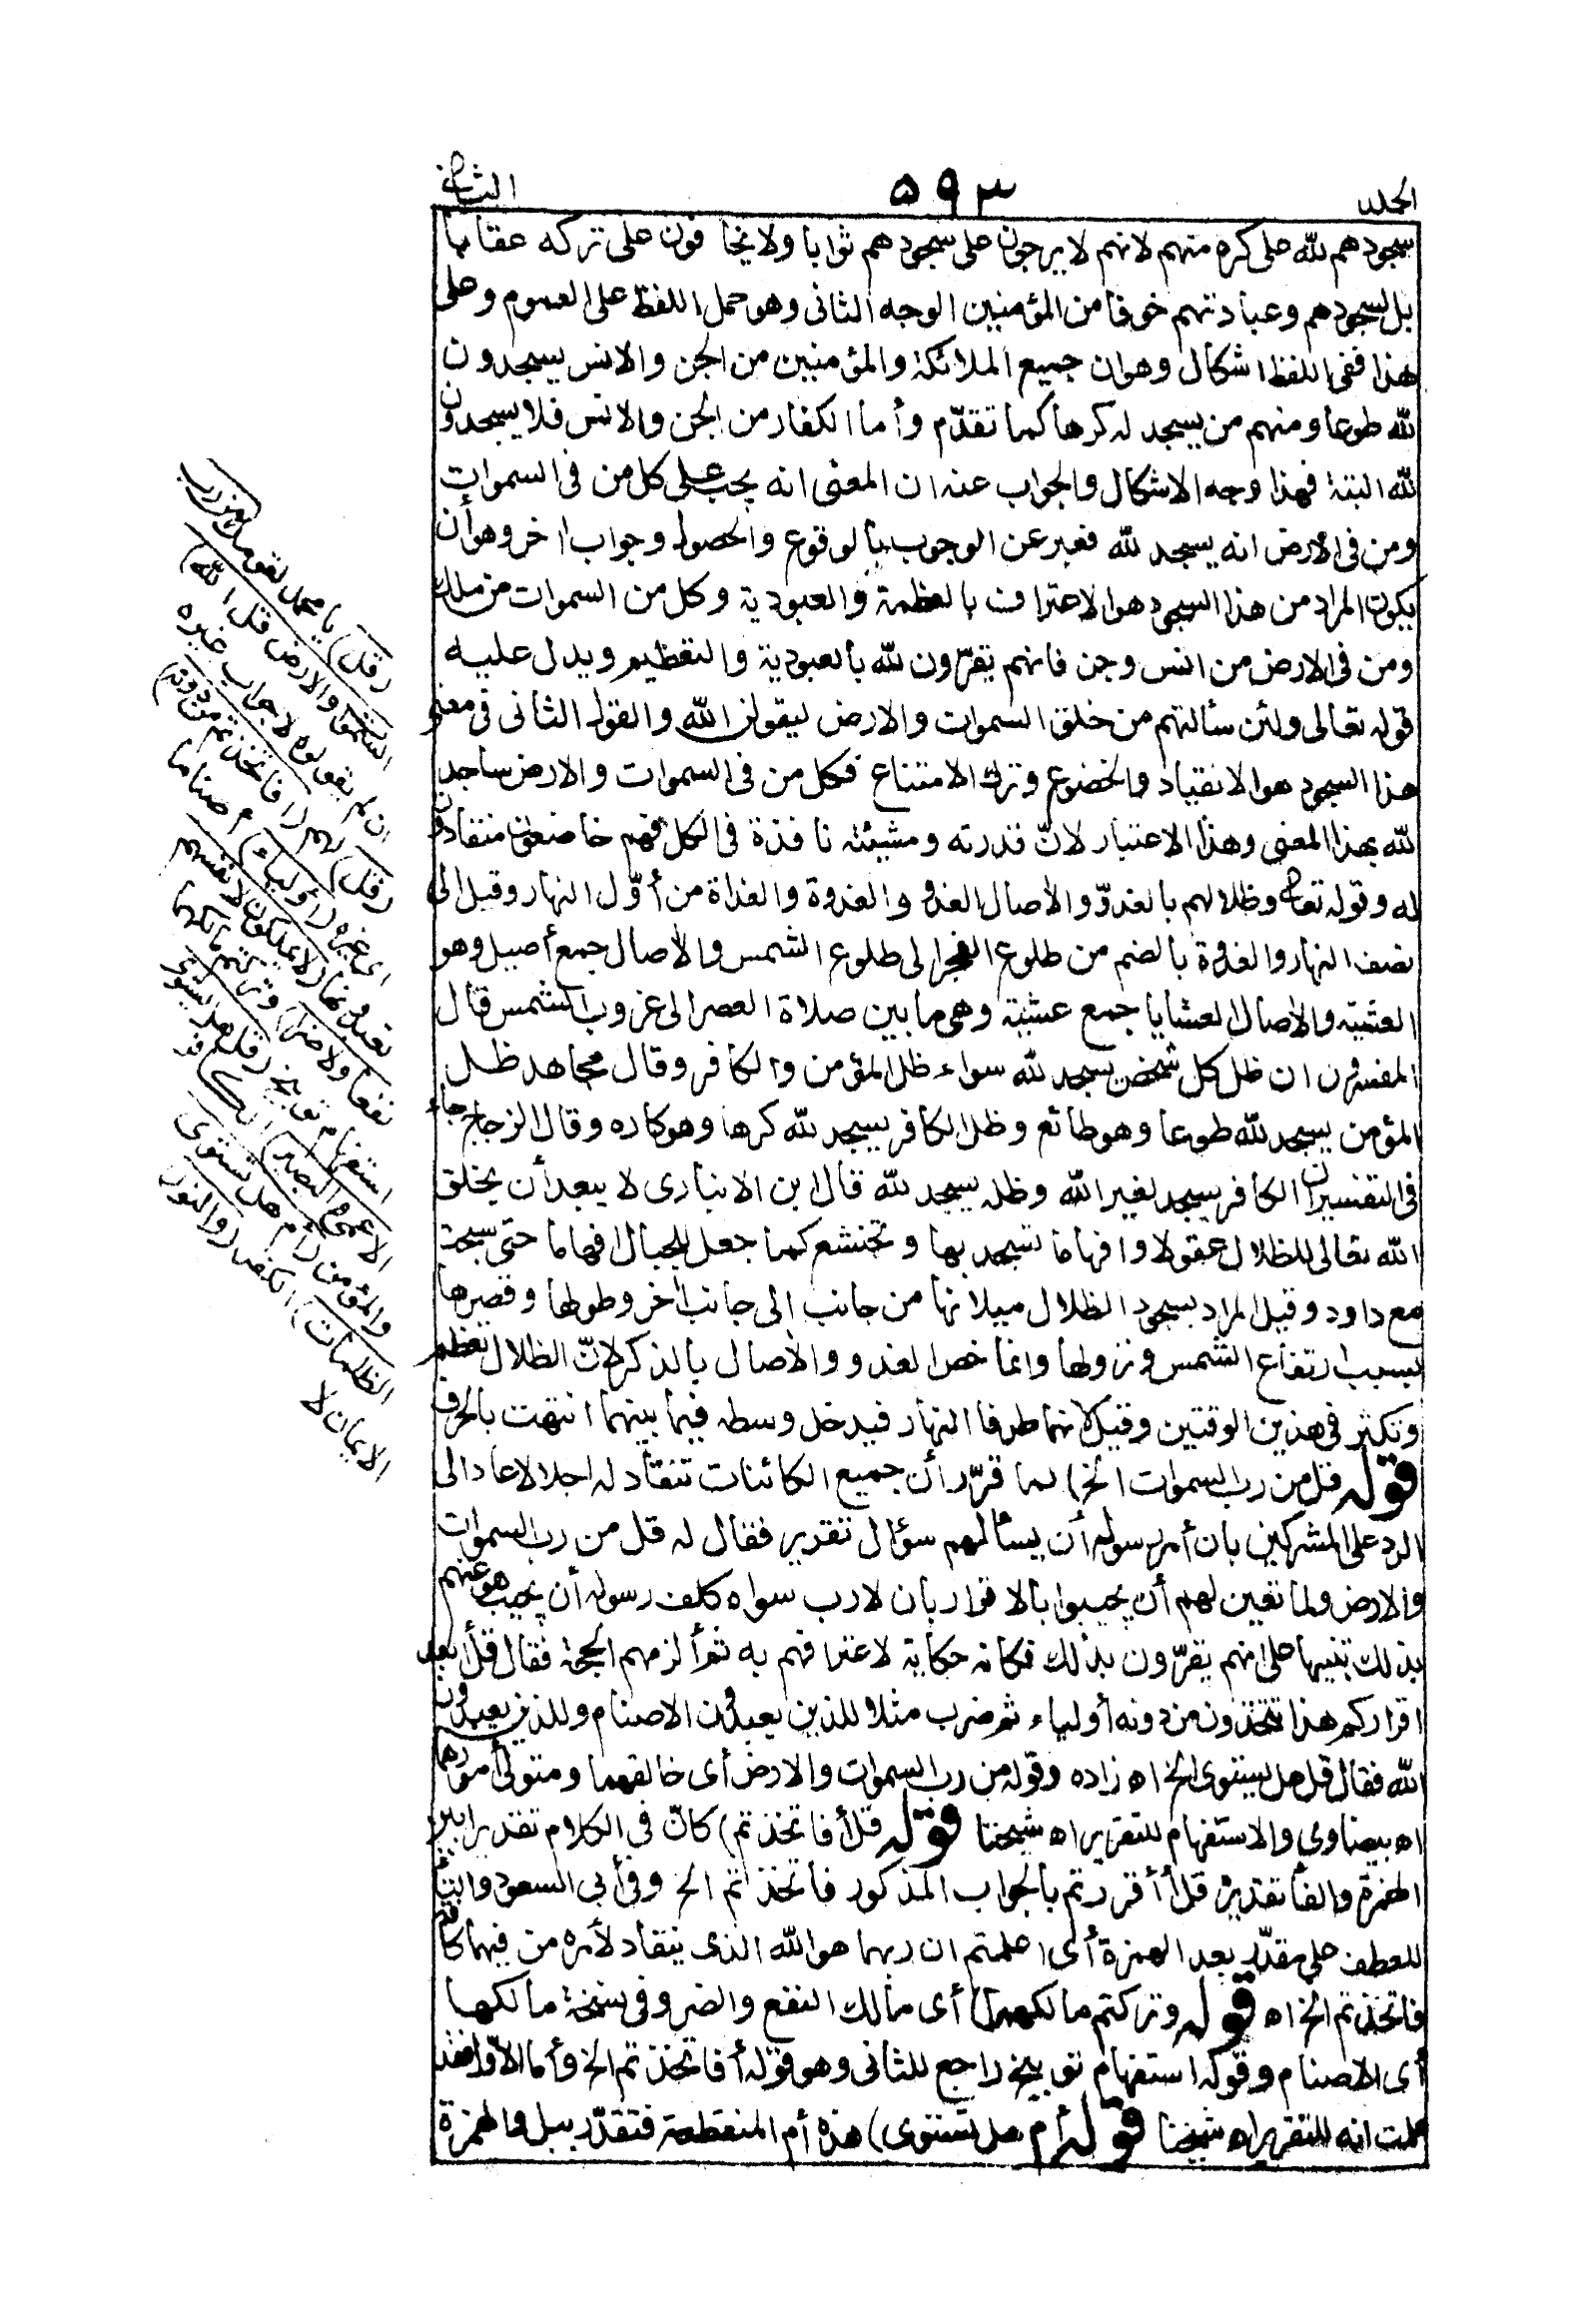 الجلد ٥٩٣ الثاني
سجودهم لله على كره منهم لانهم لا يرجون على سجودهم ثوابا ولا يخافون على تركه عقابا
بل سجودهم وعبادتهم خوفا من المؤمنين الوجه الثانى وهو حمل اللفظ على العموم وعلى
هذا ففى اللفظ اشكال وهو ان جميع الملائكة والمؤمنين من الجن والانس يسجدون
لله طوعا ومنهم من يسجد له كرها كما تقدّم وأما الكفار من الجن والانس فلا يسجدون
لله البتة فهذا وجه الاشكال والجواب عنه ان المعنى انه يجب على كل من فى السموات
ومن فى الارض انه يسجد لله فعبر عن الوجوب بالوقوع والحصول وجواب اخر وهو أن
يكون المراد من هذا السجود هو الاعتراف بالعظمة والعبودية وكل من السموات من ملك
ومن فى الارض من انس وجن فانهم يقرّون لله بالعبودية والتعظيم ويدل عليه
قوله تعالى ولئن سألتهم من خلق السموات والارض ليقولن الله والقول الثانى فى معنى
هذا السجود هو الانقياد والخضوع وترك الامتناع فكل من فى السموات والارض ساجد
لله بهذا المعنى وهذا الاعتبار لانّ قدرته ومشيئته نافذة فى الكل فهم خاضعون منقادون
له وقوله تعالى وظلالهم بالغدوّ والأصال الغدو والغدوة والغداة من أوّل النهار وقيل الى
نصف النهار والغدوة بالضم من طلوع الفجر الى طلوع الشمس والأصال جمع أصيل وهو
العشية والأصال العشايا جمع عشية وهى ما بين صلاة العصر الى غروب الشمس قال
المفسرون ان ظل كل شخص يسجد لله سواء ظل المؤمن والكافر وقال مجاهد ظل
المؤمن يسجد لله طوعا وهو طائع وظل الكافر يسجد لله كرها وهو كاره وقال الزجاج جاء
فى التفسير ان الكافر يسجد لغير الله وظله يسجد لله قال ابن الانبارى لا يبعد أن يخلق
الله تعالى للظلال عقولا وافهاما تسجد بها وتخشع كما جعل للجبال افهاما حتى سبحت
مع داود وقيل المراد بسجود الظلال ميلانها من جانب الى جانب اخر وطولها وقصرها
بسبب ارتفاع الشمس ونزولها وانما خص الغدو والأصال بالذكر لانّ الظلال تعظم
وتكثر فى هذين الوقتين وقيل لانهما طرفا النهار فيدخل وسطه فيما بينهما انتهت بالحرف
قوله قل من رب السموات الخ) لما قرّر أن جميع الكائنات تنقاد له اجلالا عاد الى
الرد على المشركين بان أمر رسوله أن يسألهم سؤال تقدير فقال له قل من رب السموات
والارض ولما تعين لهم أن يجيبوا بالاقرار بان لا رب سواه كلف رسوله أن يجيب هو عنهم
بذلك تنبيها على انهم يقرّون بذلك فكانه حكاية لاعترافهم به ثم ألزمهم الحجة فقال قل أبعد
اقراركم هذا تتخذون من دونه أولياء ثم ضرب مثلا للذين يعبدون الاصنام وللذين يعبدون
الله فقال قل هل يستوى الخ اه زاده وقوله من رب السموات والارض أى خالقهما ومتولى أمورهما
اه بيضاوى والاستفهام للتقرير اه شيخنا قوله قل أفاتخذتم) كانّ فى الكلام تقديرا بين
الهمزة والفأ تقديره قل أأقررتم بالجواب المذكور فاتخذتم الخ وفى أبى السعود والفأ
للعطف على مقدّر بعد الهمزة أى اعلمتم ان ربهما هو الله الذى ينقاد لأمره من فيهما كافة
فاتخذتم الخ اه قوله وتركتم مالكهما) أى مالك النفع والضر وفى نسخة مالكها
أى الاصنام وقوله استفهام توبيخ راجع للثانى وهو قوله أفاتخذتم الخ وأما الأوّل فقد
علمت انه للتقرير اه شيخنا قوله أم هل تستوى) هذه أم المنقطعة فتقدّر ببل والهمزة
(قل) يا محمد لقومك (من رب
السموات والارض قل الله)
ان لم يقولوه لا جواب غيره
(قل) لهم (أفاتخذتم من دونه)
اى غيره (أولياء) اصناما
تعبدونها (لا يملكون لانفسهم
نفعا ولا ضرا) وتركتم مالكهما
استفهام توبيخ (قل هل يستوى
الاعمى والبصير) الكافر
والمؤمن (أم هل تستوى
الظلمات) الكفر (والنور)
الايمان لا